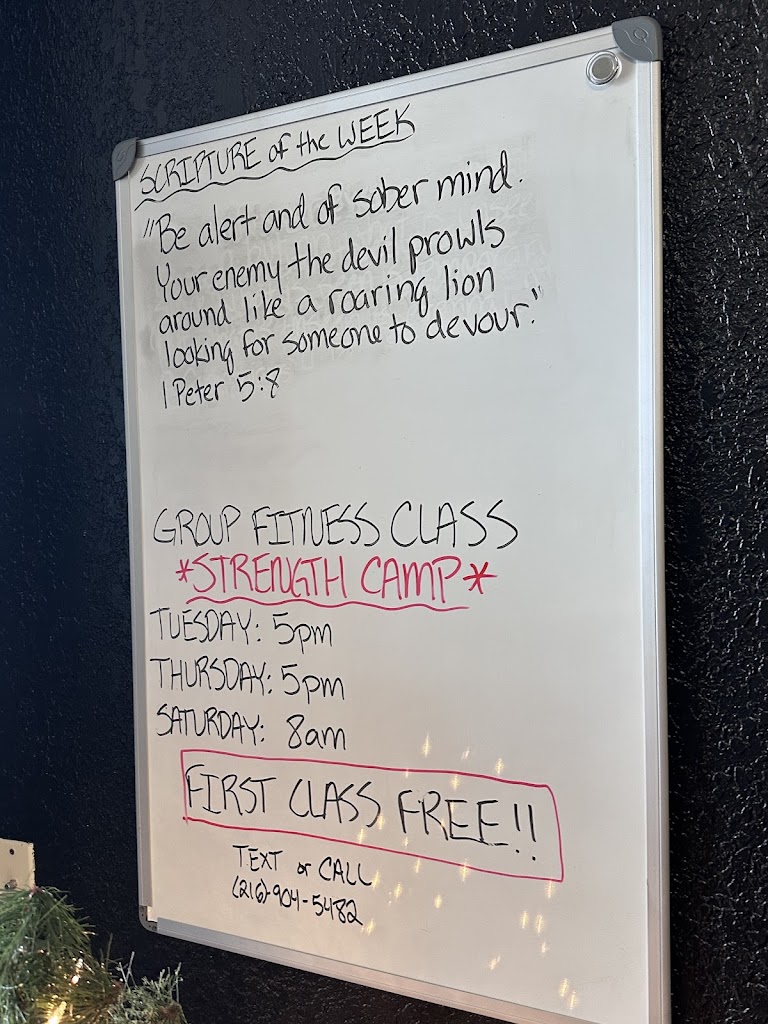 SCRIPTURE of the WEEK
"Be alert and of sober mind.
Your enemy the devil prowls
around like a roaring lion
looking for someone to devour."
1 Peter 5:8
GROUP FITNESS CLASS
*STRENGTH CAMP*
TUESDAY: 5pm
THURSDAY: 5pm
SATURDAY: 8am
FIRST CLASS FREE!!
TEXT or CALL
(216)-904-5482